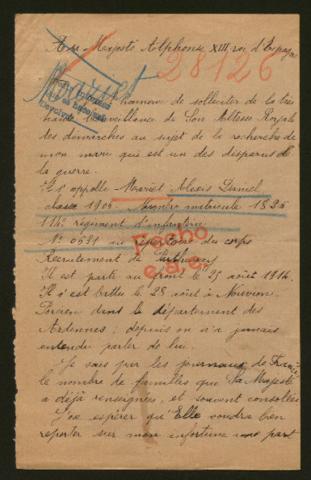 A sa Majesté Alphonse XIII, roi d'Espagne
28126
Moriet
l'honneur de solliciter de la très
haute bienveillance de Son Altesse Royale
des démarches au sujet de la recherche de
mon mari qui est un des disparus de
la guerre.
Il s'appelle Moriet Alexis Daniel
classe 1906 Numéro matricule 1826
114e régiment d'infanterie
No 0631 au répertoire du corps
Recrutement de Parthenay
Fecho
Il est parti au front le 25 août 1914.
Il s'est battu le 28 août à Novion
Porcien dans le département des
Ardennes ; depuis on n'a jamais
entendu parler de lui.
Je sais par les journaux de France
le nombre de familles que Sa Majesté
a déjà renseignées, et souvent consolées
J'ose espérer qu'Elle voudra bien
reporter sur mon infortune une part